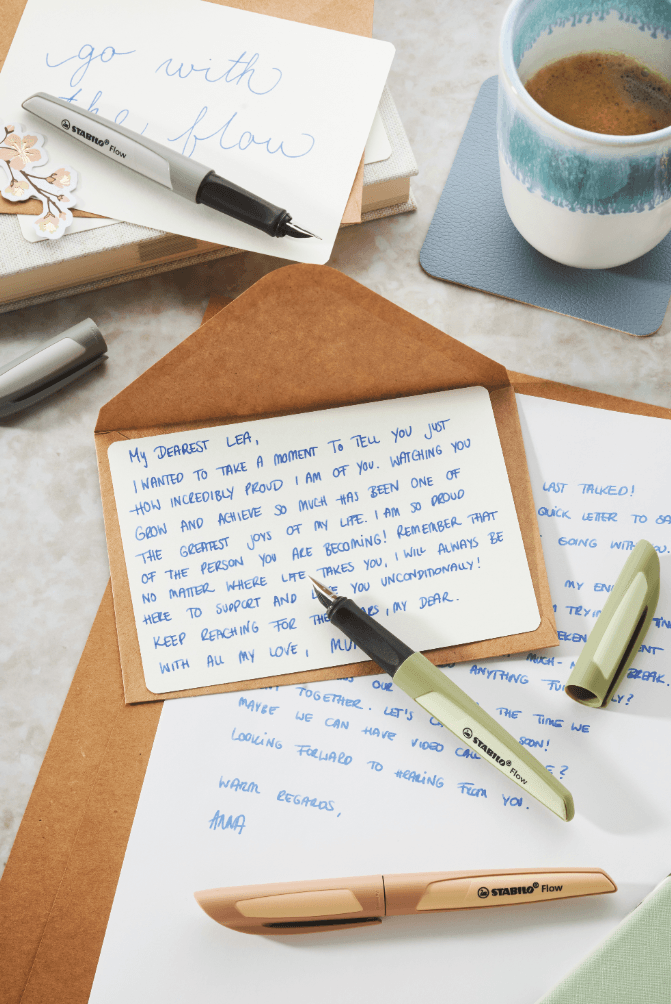 go with
the flow
STABILO® Flow
My DEAREST LEA,
I WANTED TO TAKE A MOMENT TO TELL YOU JUST
HOW INCREDIBLY PROUD I AM OF YOU. WATCHING YOU
GROW AND ACHIEVE SO MUCH HAS BEEN ONE OF
THE GREATEST JOYS OF MY LIFE. I AM SO PROUD
OF THE PERSON YOU ARE BECOMING! REMEMBER THAT
NO MATTER WHERE LIFE TAKES YOU, I WILL ALWAYS BE
HERE TO SUPPORT AND YOU UNCONDITIONALLY!
KEEP REACHING FOR , MY DEAR.
WITH ALL MY LOVE,
LAST TALKED!
QUICK LETTER TO
GOING WITH
MY
BREAK.
ANYTHING
TOGETHER. LET'S THE TIME WE
MAYBE WE CAN HAVE VIDEO SOON!
LOOKING FORWARD TO HEARING FROM YOU.
WARM REGARDS,
ANNA
STABILO® Flow
STABILO® Flow